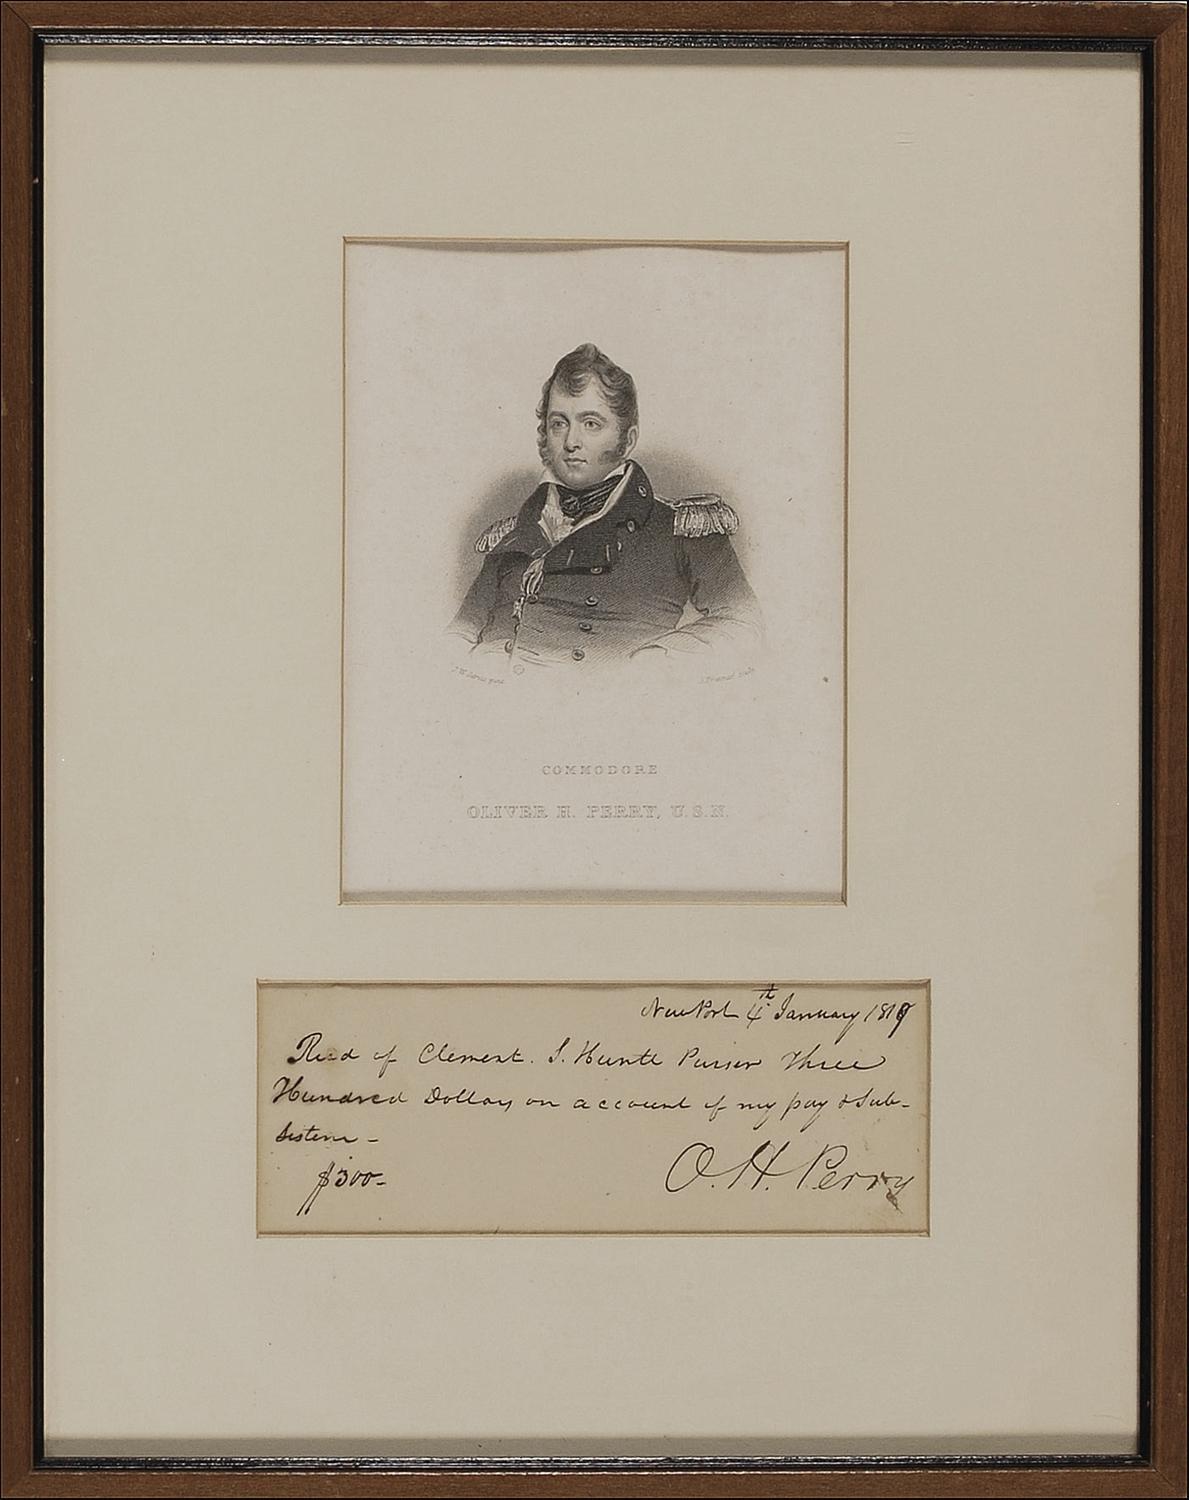 J. W. Jarvis pinx.
COMMODORE
OLIVER H. PERRY, U.S.N.
NewPort 4th January 1819
Recd of Clement. S. Huntt Purser Three
Hundred Dollars on account of my pay & Sub-
sistence -
$300-
O. H. Perry